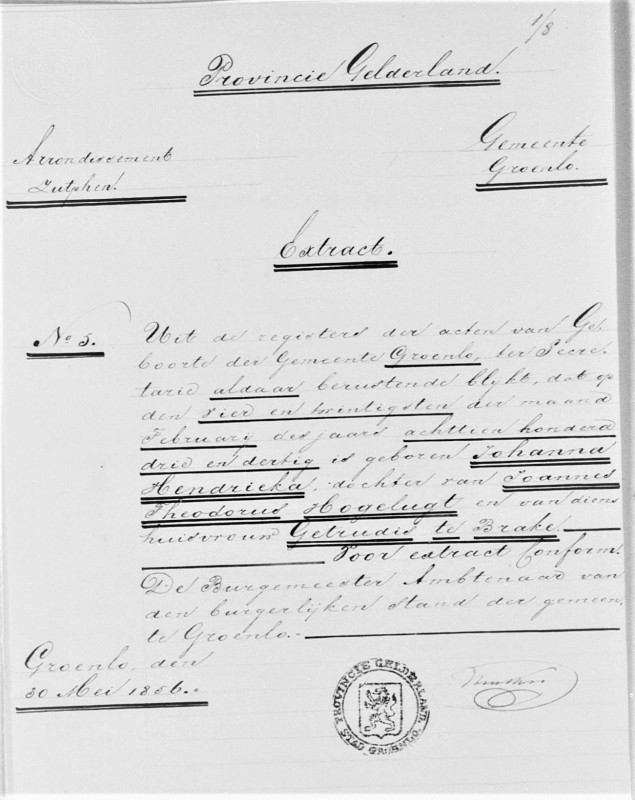 1/8
Provincie Gelderland.
Arrondissement
Zutphen.
Gemeente
Groenlo.
Extract.
No 5.
Uit de registers der acten van Ge,
boorte der Gemeente Groenlo, ter Secre,
tarie aldaar berustende blykt, dat op
den vier en twintigsten der maand
Februarij des jaars achttien honderd
drie en dertig is geboren Johanna
Hendrieka, dochter van Joannes
Theodorus Hogelugt en van diens
huisvrouw Getrudis te Brake.
Voor extract Conform.
De Burgemeester Ambtenaar van
den burgerlijken stand der gemeen,
te Groenlo.
Groenlo, den
30 Mei 1856.
PROVINCIE GELDERLAND.
STAD GROENLO.